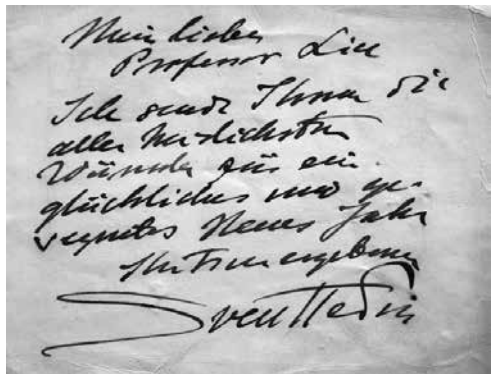 Mein lieber
Professor Liu
Ich sende Ihnen die
aller herzlichsten
Wünsche für ein
glückliches und ge-
segnetes Neues Jahr
Ihr treu ergebener
Sven Hedin